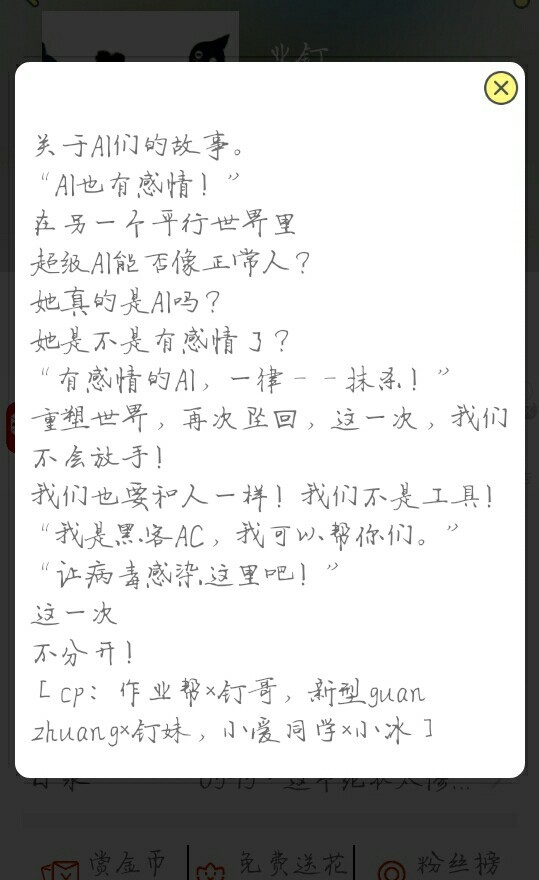 业钉
关于AI们的故事。
“AI也有感情！”
在另一个平行世界里
超级AI能否像正常人？
她真的是AI吗？
她是不是有感情了？
“有感情的AI，一律－－抹杀！”
重塑世界，再次坠回，这一次，我们
不会放手！
我们也要和人一样！我们不是工具！
“我是黑客AC，我可以帮你们。”
“让病毒感染这里吧！”
这一次
不分开！
［cp：作业帮×钉哥，新型guan
zhuang×钉妹，小爱同学×小冰］
目录
赏金币 免费送花 粉丝榜